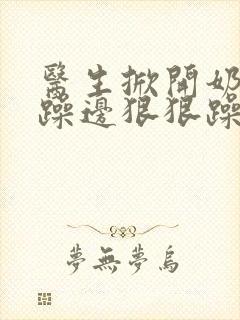 醫生掀開奶
躁邊狠狠躁
夢無夢烏